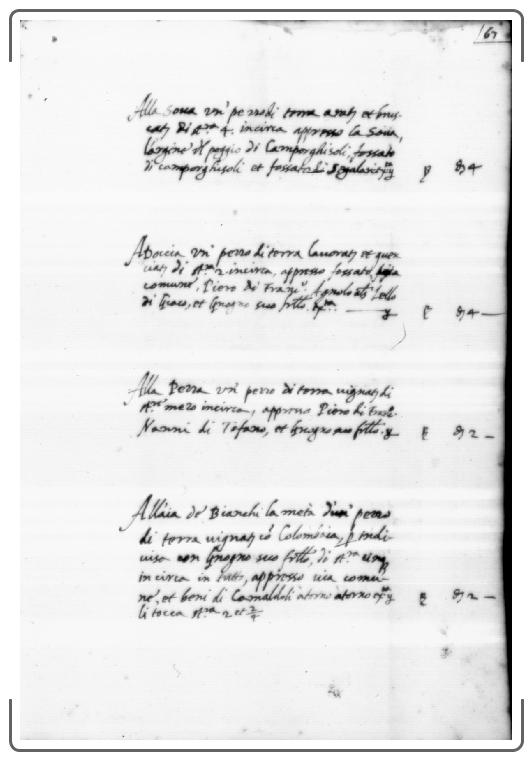 167
Alla Sova un' pezzo di terra arat et
cat di st.ra 4. incirca appresso la Sova,
l'argine del poggio di Camporghisoli, fossato
di camporghisoli et fossato di 4
Adoccia un' pezzo di terra lavorat et quer
ciat di st.ra 2 incirca, appresso fossato,
comune, Piero di Agnolo Lello
di et Gnogno suo frllo. 4
Alla Pezza un' pezzo di terra vignat di
st.ro mezo incirca, appresso Piero di
Nanni di Tofano, et Gnogno suo frllo. 2
All'aia de' Bianchi la metà d'un' pezzo
di terra vignat cō Colombaia, p indi-
visa con Gnogno suo frllo, di st.ra cinq
incirca in tutto, appresso via comu-
ne, et beni di Camaldoli atorno atorno 2
li tocca st.ra 2 et